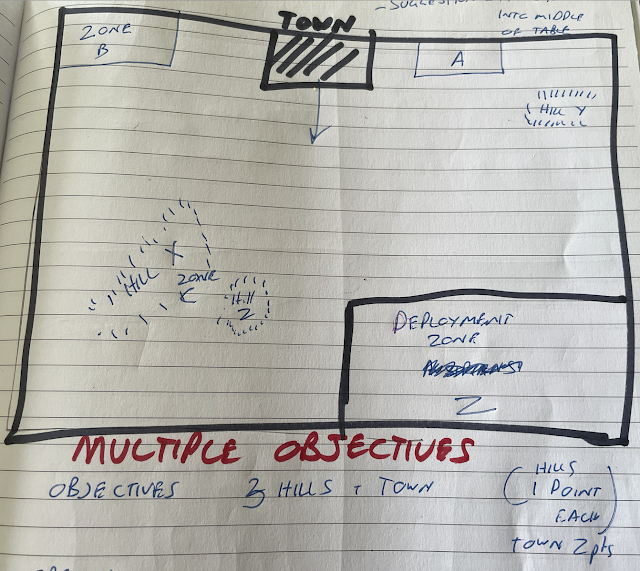 - SUGGESTION
INTO MIDDLE
OF TABLE
TOWN
ZONE
B
A
HILL Y
HILL X
ZONE
C
Hill
Z
DEPLOYMENT
ZONE
Z
MULTIPLE OBJECTIVES
OBJECTIVES 3 HILLS + TOWN
(HILLS
1 POINT
EACH)
TOWN 2pts